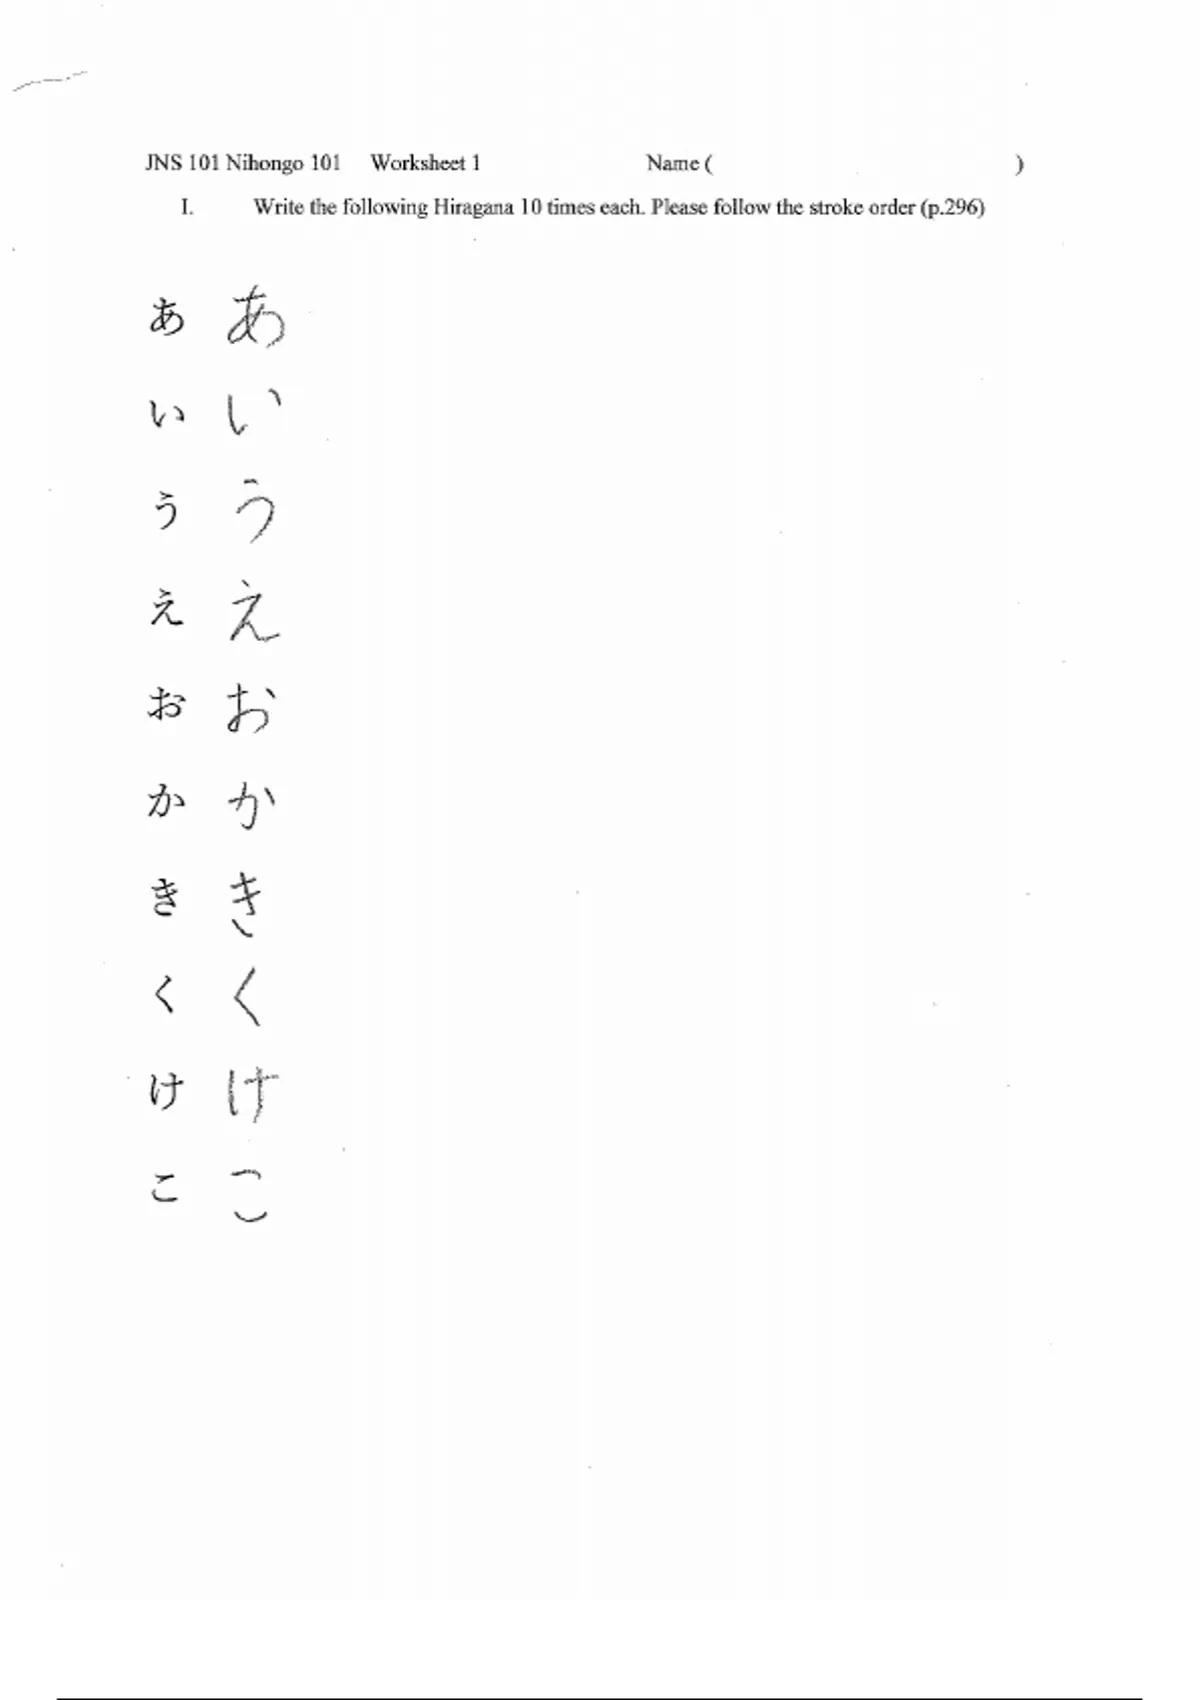 JNS 101 Nihongo 101 Worksheet 1 Name ( )
I. Write the following Hiragana 10 times each. Please follow the stroke order (p.296)
あ あ
い い
う う
え え
お お
か か
き き
く く
け け
こ こ